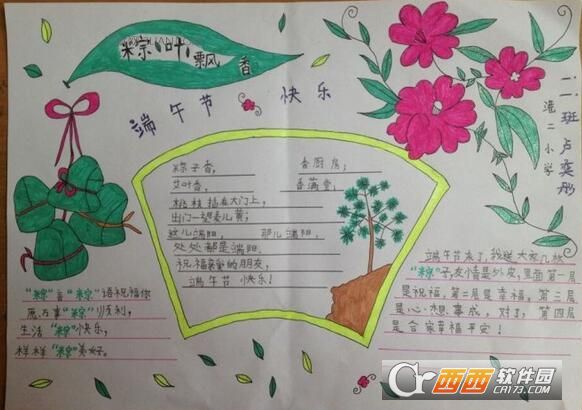 粽叶飘香
端午节 快乐
二、班 卢奕彤
港二小学
粽子香, 香厨房;
艾叶香, 香满堂;
桃枝插在大门上,
出门一望麦儿黄;
这儿端阳, 那儿端阳,
处处都是端阳.
祝福亲爱的朋友,
端午节 快乐!
“粽”言“粽”语祝福你
愿万事“粽”顺利,
生活“粽”快乐,
样样“粽”美好。
端午节来了,我送大家几林
“粽”子,友情是外皮,里面第一层
是祝福,第二层是幸福,第三层
是心想事成,对了,第四层
是合家幸福平安!
西西软件园
CR173.COM